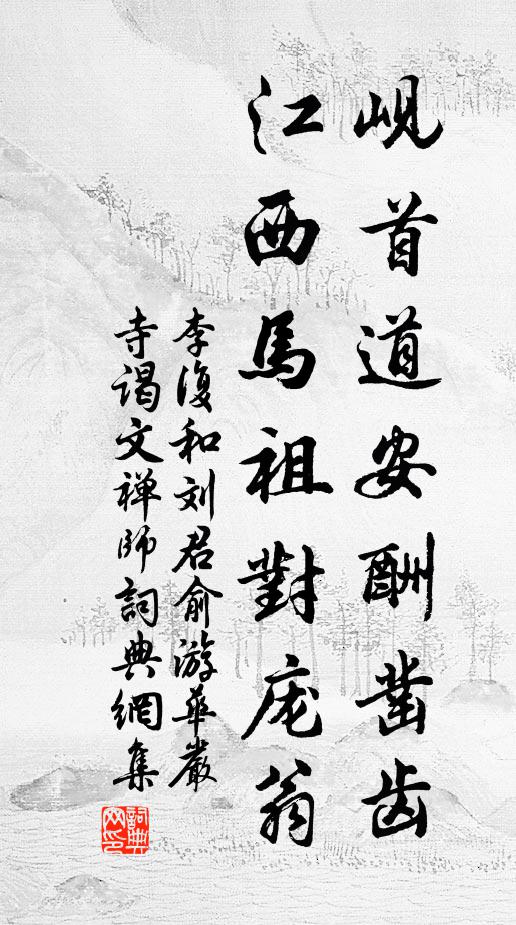 岘首道安酬凿齿
江西馬祖對庞翁
李復和刘君俞游華嚴
寺谒文禅师詞典網集
詞典网印